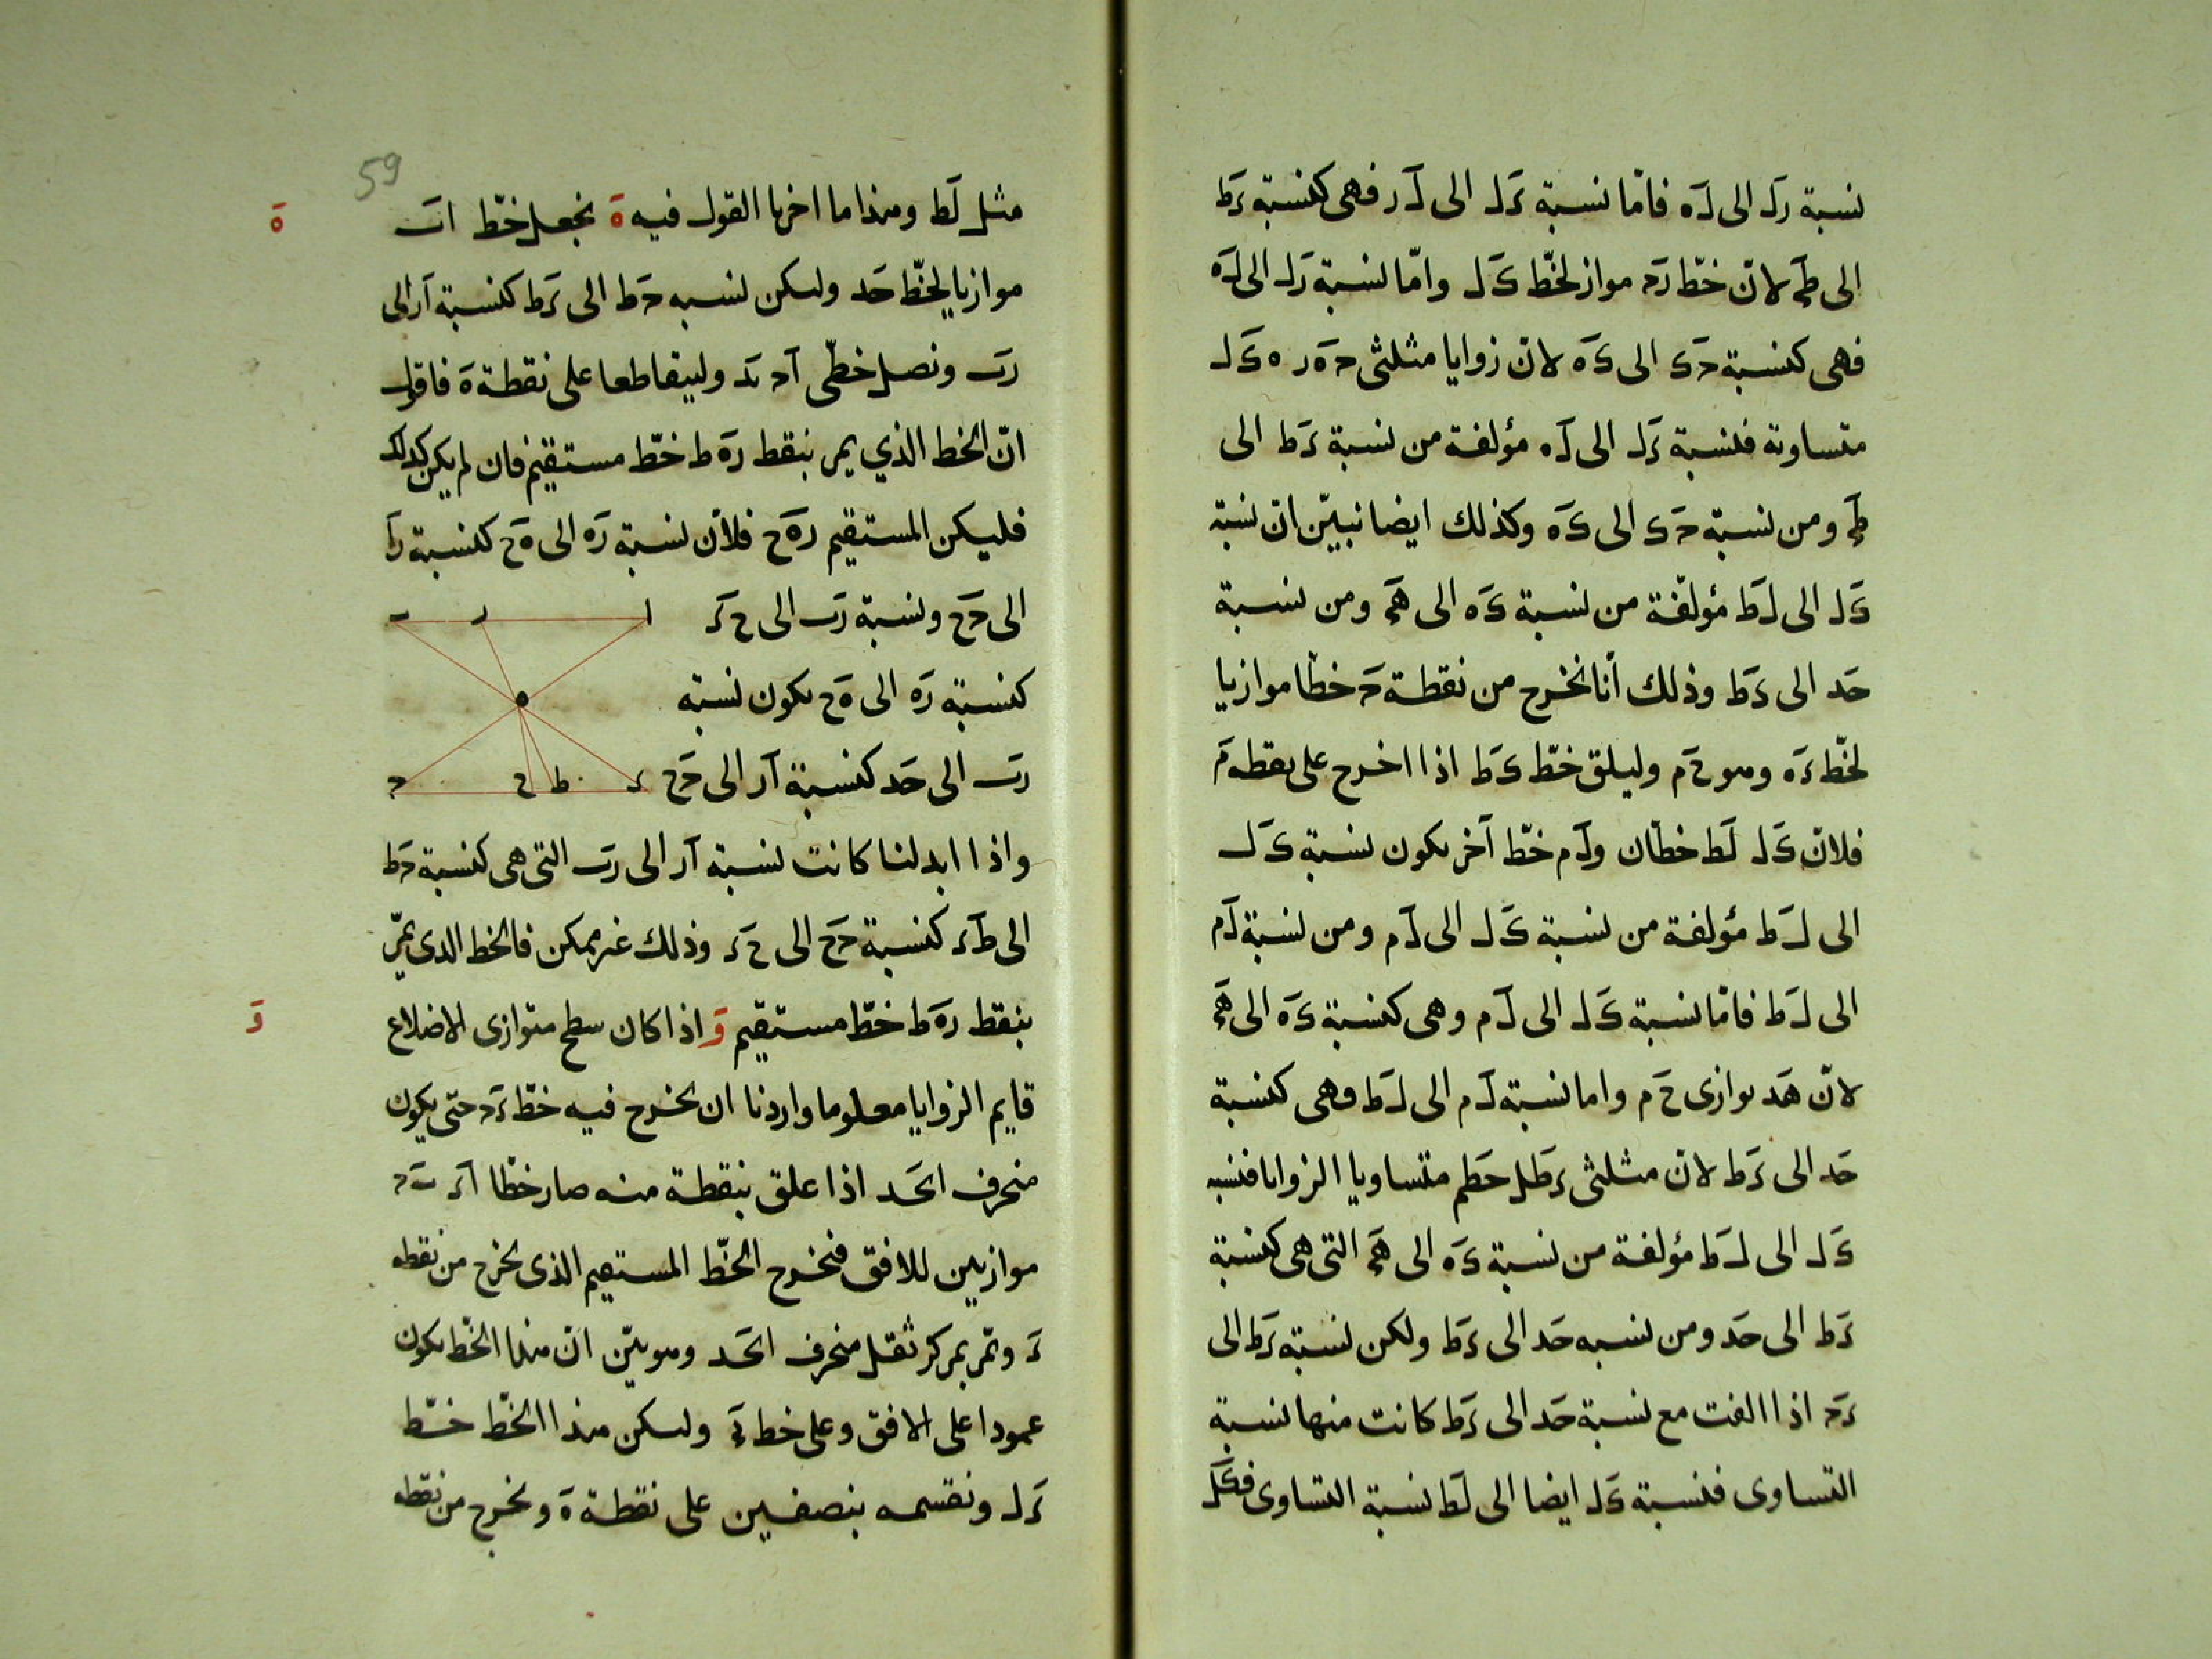 نسبة رل الى له فامّا نسبة ءل الى لر فهى كنسبة ءط
الى طح لانّ خطّ رح مواز لخطّ ىل وامّا نسبة رل الى له
فهى كنسبة حى الى ىه لانّ زوايا مثلثى حه ر ه ىل
متساوية فنسبة ءل الى له مؤلفة من نسبة ءط الى
طح ومن نسبة حى الى ىه وكذلك ايضا نبيّن ان نسبة
ىل الى لط مؤلفة من نسبة ىه الى هح ومن نسبة
حد الى ءط وذلك أنا نخرج من نقطة ح خطّا موازيا
لخطّ ءه وهو حم وليلق خطّ ىط اذا اخرج على نقطة م
فلانّ ىل لط خطّان ولم خطّ آخر يكون نسبة ىل
الى لط مؤلفة من نسبة ىل الى لم ومن نسبة لم
الى لط فامّا نسبة ىل الى لم وهى كنسبة ىه الى هح
لانّ هد يوازى حم واما نسبة لم الى لط وهى كنسبة
حد الى ءط لانّ مثلثى ءطل حطم متساويا الزوايا فنسبة
ىل الى لط مؤلفة من نسبة ىه الى هح التى هى كنسبة
ءط الى حد ومن نسبه حد الى ءط ولكن نسبة ءط الى
ءح اذا الفت مع نسبة حد الى ءط كانت منها نسبة
التساوى فنسبة ىل ايضا الى لط نسبة التساوى فكل
59
مثل لط وهذا ما اخرنا القول فيه ه نجعل خطّ اب
ه
موازيا لخطّ حد وليكن نسبه حط الى ءط كنسبة ار الى
رب ونصل خطّى اح بد وليتقاطعا على نقطة ه فاقول
انّ الخط الذي يمر بنقط ره ط خطّ مستقيم فان لم يكن كذلك
فليكن المستقيم ره ح فلأن نسبة ره الى ه ح كنسبة را
الى حح ونسبة رب الى ح ء
كنسبة ره الى ه ح يكون نسبة
رب الى حد كنسبة ار الى حح
ا ر ب
ه
ء ط ح ح
واذا ابدلنا كانت نسبة ار الى رب التى هى كنسبة حط
الى طء كنسبة حح الى ح ء وذلك غير ممكن فالخط الذى يمرّ
بنقط ره ط خطّ مستقيم و اذا كان سطح متوازى الاضلاع
و
قايم الزوايا معلوما واردنا ان نخرج فيه خطّ ءح حتى يكون
منحرف احد اذا علق بنقطة منه صار خطّا اء بح
موازيين للافق فنخرج الخطّ المستقيم الذى يخرج من نقطه
ء وتمّر بمركز ثقل منحرف احد وهو بيّن انّ هذا الخطّ يكون
عمودا على الافق وعلى خط اء وليكن هذا الخطّ خطّ
ءل ونقسمه بنصفين على نقطة ه ونخرج من نقطه